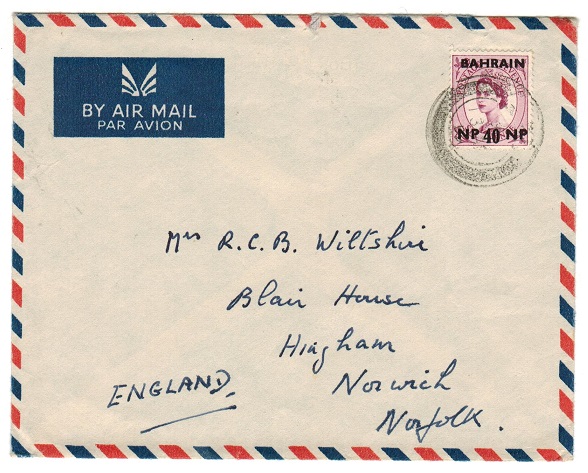 BY AIR MAIL
PAR AVION
BAHRAIN
NP 40 NP
Mrs R.C.B. Wiltshire
Blair House
Hingham
Norwich
Norfolk.
ENGLAND